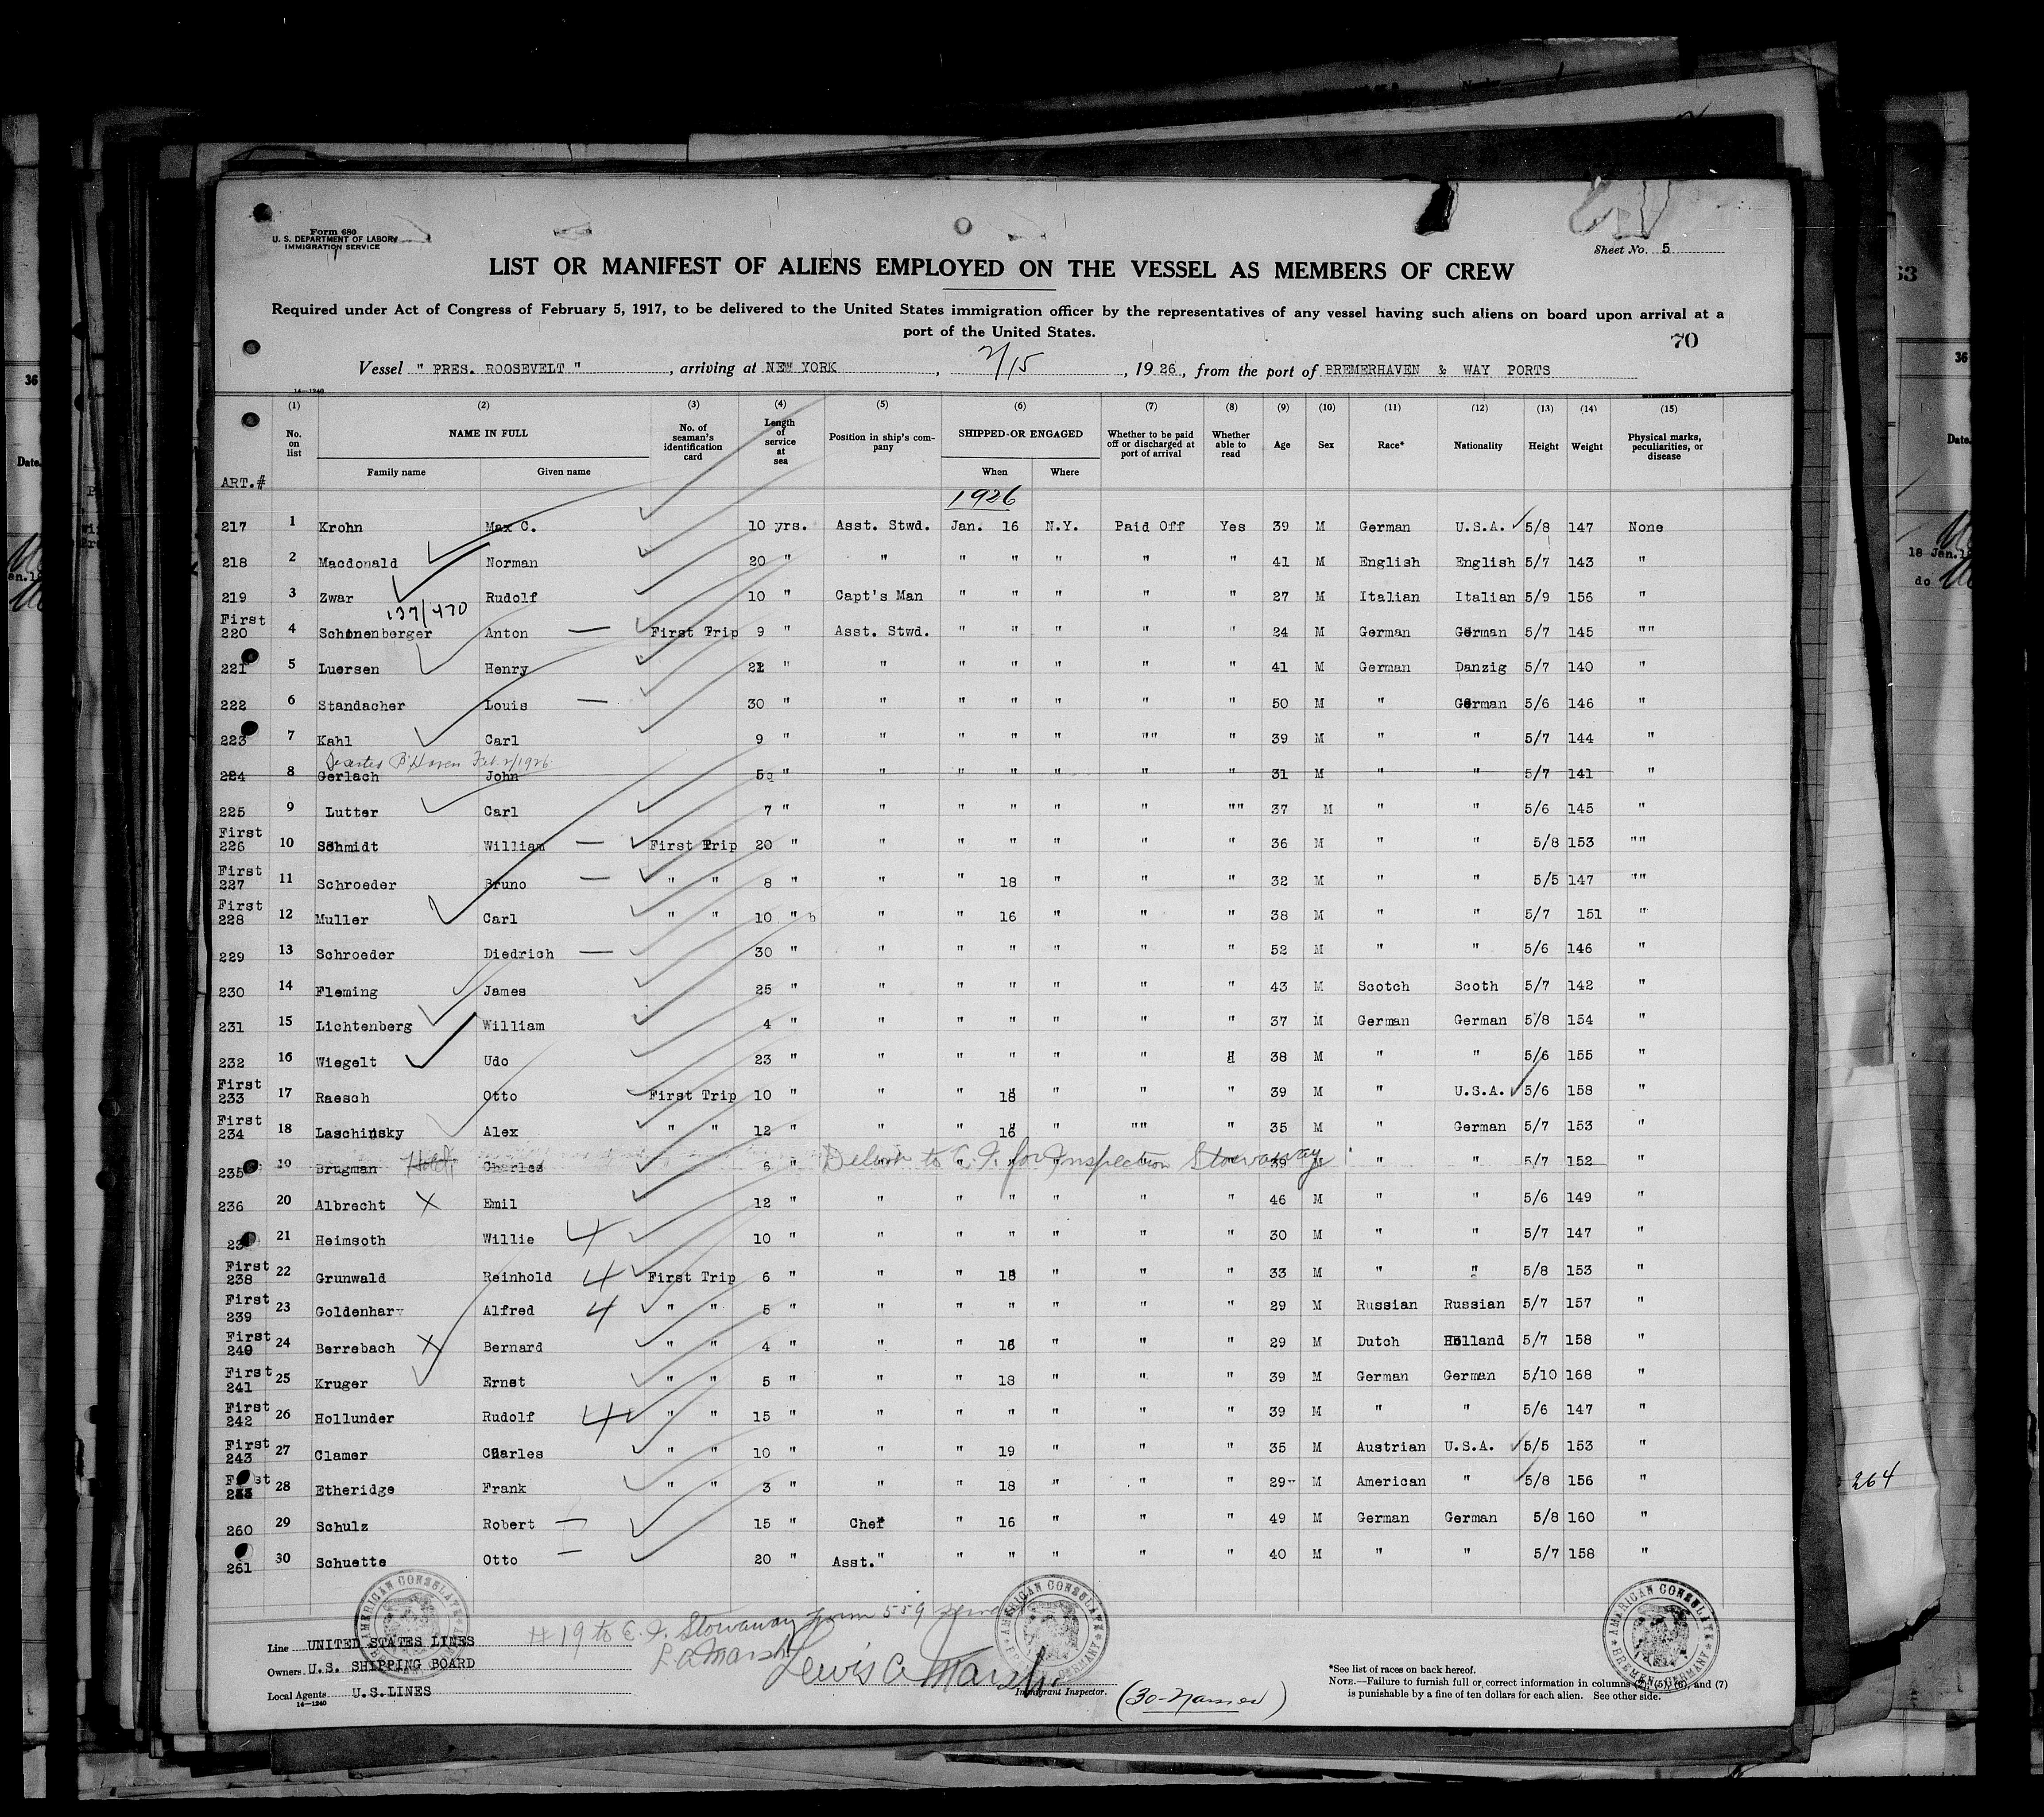 Form 680
U. S. DEPARTMENT OF LABOR
IMMIGRATION SERVICE
Sheet No. 5
LIST OR MANIFEST OF ALIENS EMPLOYED ON THE VESSEL AS MEMBERS OF CREW
Required under Act of Congress of February 5, 1917, to be delivered to the United States immigration officer by the representatives of any vessel having such aliens on board upon arrival at a
port of the United States.
70
Vessel " PRES. ROOSEVELT ", arriving at NEW YORK, 2/15, 1926, from the port of BREMERHAVEN & WAY PORTS
14—1240
(1) (2) (3) (4) (5) (6) (7) (8) (9) (10) (11) (12) (13) (14) (15)
No. on list NAME IN FULL No. of seaman's identification card Length of service at sea Position in ship's company SHIPPED OR ENGAGED Whether to be paid off or discharged at port of arrival Whether able to read Age Sex Race* Nationality Height Weight Physical marks, peculiarities, or disease
Family name Given name When Where
ART.#
1926
217 1 Krohn Max C. 10 yrs. Asst. Stwd. Jan. 16 N.Y. Paid Off Yes 39 M German U.S.A. 5/8 147 None
218 2 Macdonald Norman 20 " " " " " " " 41 M English English 5/7 143 "
219 3 Zwar Rudolf 10 " Capt's Man " " " " " 27 M Italian Italian 5/9 156 "
137/470
First 220 4 Schönenberger Anton — First Trip 9 " Asst. Stwd. " " " " " 24 M German German 5/7 145 ""
221 5 Luersen Henry 22 " " " " " " " 41 M German Danzig 5/7 140 "
222 6 Standacher Louis — 30 " " " " " " " 50 M " German 5/6 146 "
223 7 Kahl Carl 9 " " " " " "" " 39 M " " 5/7 144 "
Deserted B'Haven Feb. 2/1926
224 8 Gerlach John 5 " " " " " " " 31 M " " 5/7 141 "
225 9 Lutter Carl 7 " " " " " " "" 37 M " " 5/6 145 "
First 226 10 Schmidt William — First Trip 20 " " " " " " " 36 M " " 5/8 153 ""
First 227 11 Schroeder Bruno — " " 8 " " " 18 " " " 32 M " " 5/5 147 ""
First 228 12 Muller Carl " " 10 " " " 16 " " " 38 M " " 5/7 151 "
229 13 Schroeder Diedrich — 30 " " " " " " " 52 M " " 5/6 146 "
230 14 Fleming James 25 " " " " " " " 43 M Scotch Scoth 5/7 142 "
231 15 Lichtenberg William 4 " " " " " " " 37 M German German 5/8 154 "
232 16 Wiegelt Udo 23 " " " " " " 38 M " " 5/6 155 "
First 233 17 Raesch Otto First Trip 10 " " " 18 " " " 39 M " U.S.A. 5/6 158 "
First 234 18 Laschinsky Alex " " 12 " " " 16 " "" " 35 M " German 5/7 153 "
235 19 Brugman Charles 6 " " " " " " " 39 M " " 5/7 152 "
Deliver to E.I. for Inspection Stowaway
236 20 Albrecht X Emil 12 " " " " " " " 46 M " " 5/6 149 "
21 Heimsoth Willie 4 10 " " " " " " " 30 M " " 5/7 147 "
First 238 22 Grunwald Reinhold 4 First Trip 6 " " " 18 " " " 33 M " " 5/8 153 "
First 239 23 Goldenhar Alfred 4 " " 5 " " " " " " " 29 M Russian Russian 5/7 157 "
First 240 24 Berrebach X Bernard " " 4 " " " 16 " " " 29 M Dutch Holland 5/7 158 "
First 241 25 Kruger Ernst " " 5 " " " 18 " " " 39 M German German 5/10 168 "
First 242 26 Hollunder Rudolf 4 " " 15 " " " " " " " 39 M " " 5/6 147 "
First 243 27 Clamer Charles " " 10 " " " 19 " " " 35 M Austrian U.S.A. 5/5 153 "
First 28 Etheridge Frank " " 3 " " " 18 " " " 29 M American " 5/8 156 "
260 29 Schulz Robert — 15 " Chef " 16 " " " 49 M German German 5/8 160 "
261 30 Schuette Otto — 20 " Asst." " " " " " 40 M " " 5/7 158 "
AMERICAN CONSULATE
AMERICAN CONSULATE
AMERICAN CONSULATE BREMEN, GERMANY
#19 to E. I. Stowaway form 559 served
L. A. Marsh
Line UNITED STATES LINES
Owners U.S. SHIPPING BOARD
Local Agents U.S.LINES
14—1240
Lewis A. Marsh
Immigrant Inspector.
(30-Named)
*See list of races on back hereof.
NOTE.—Failure to furnish full or correct information in columns (2), (5), (6), and (7)
is punishable by a fine of ten dollars for each alien. See other side.
36
Date.
18 Jan.
do
264
36
Date.